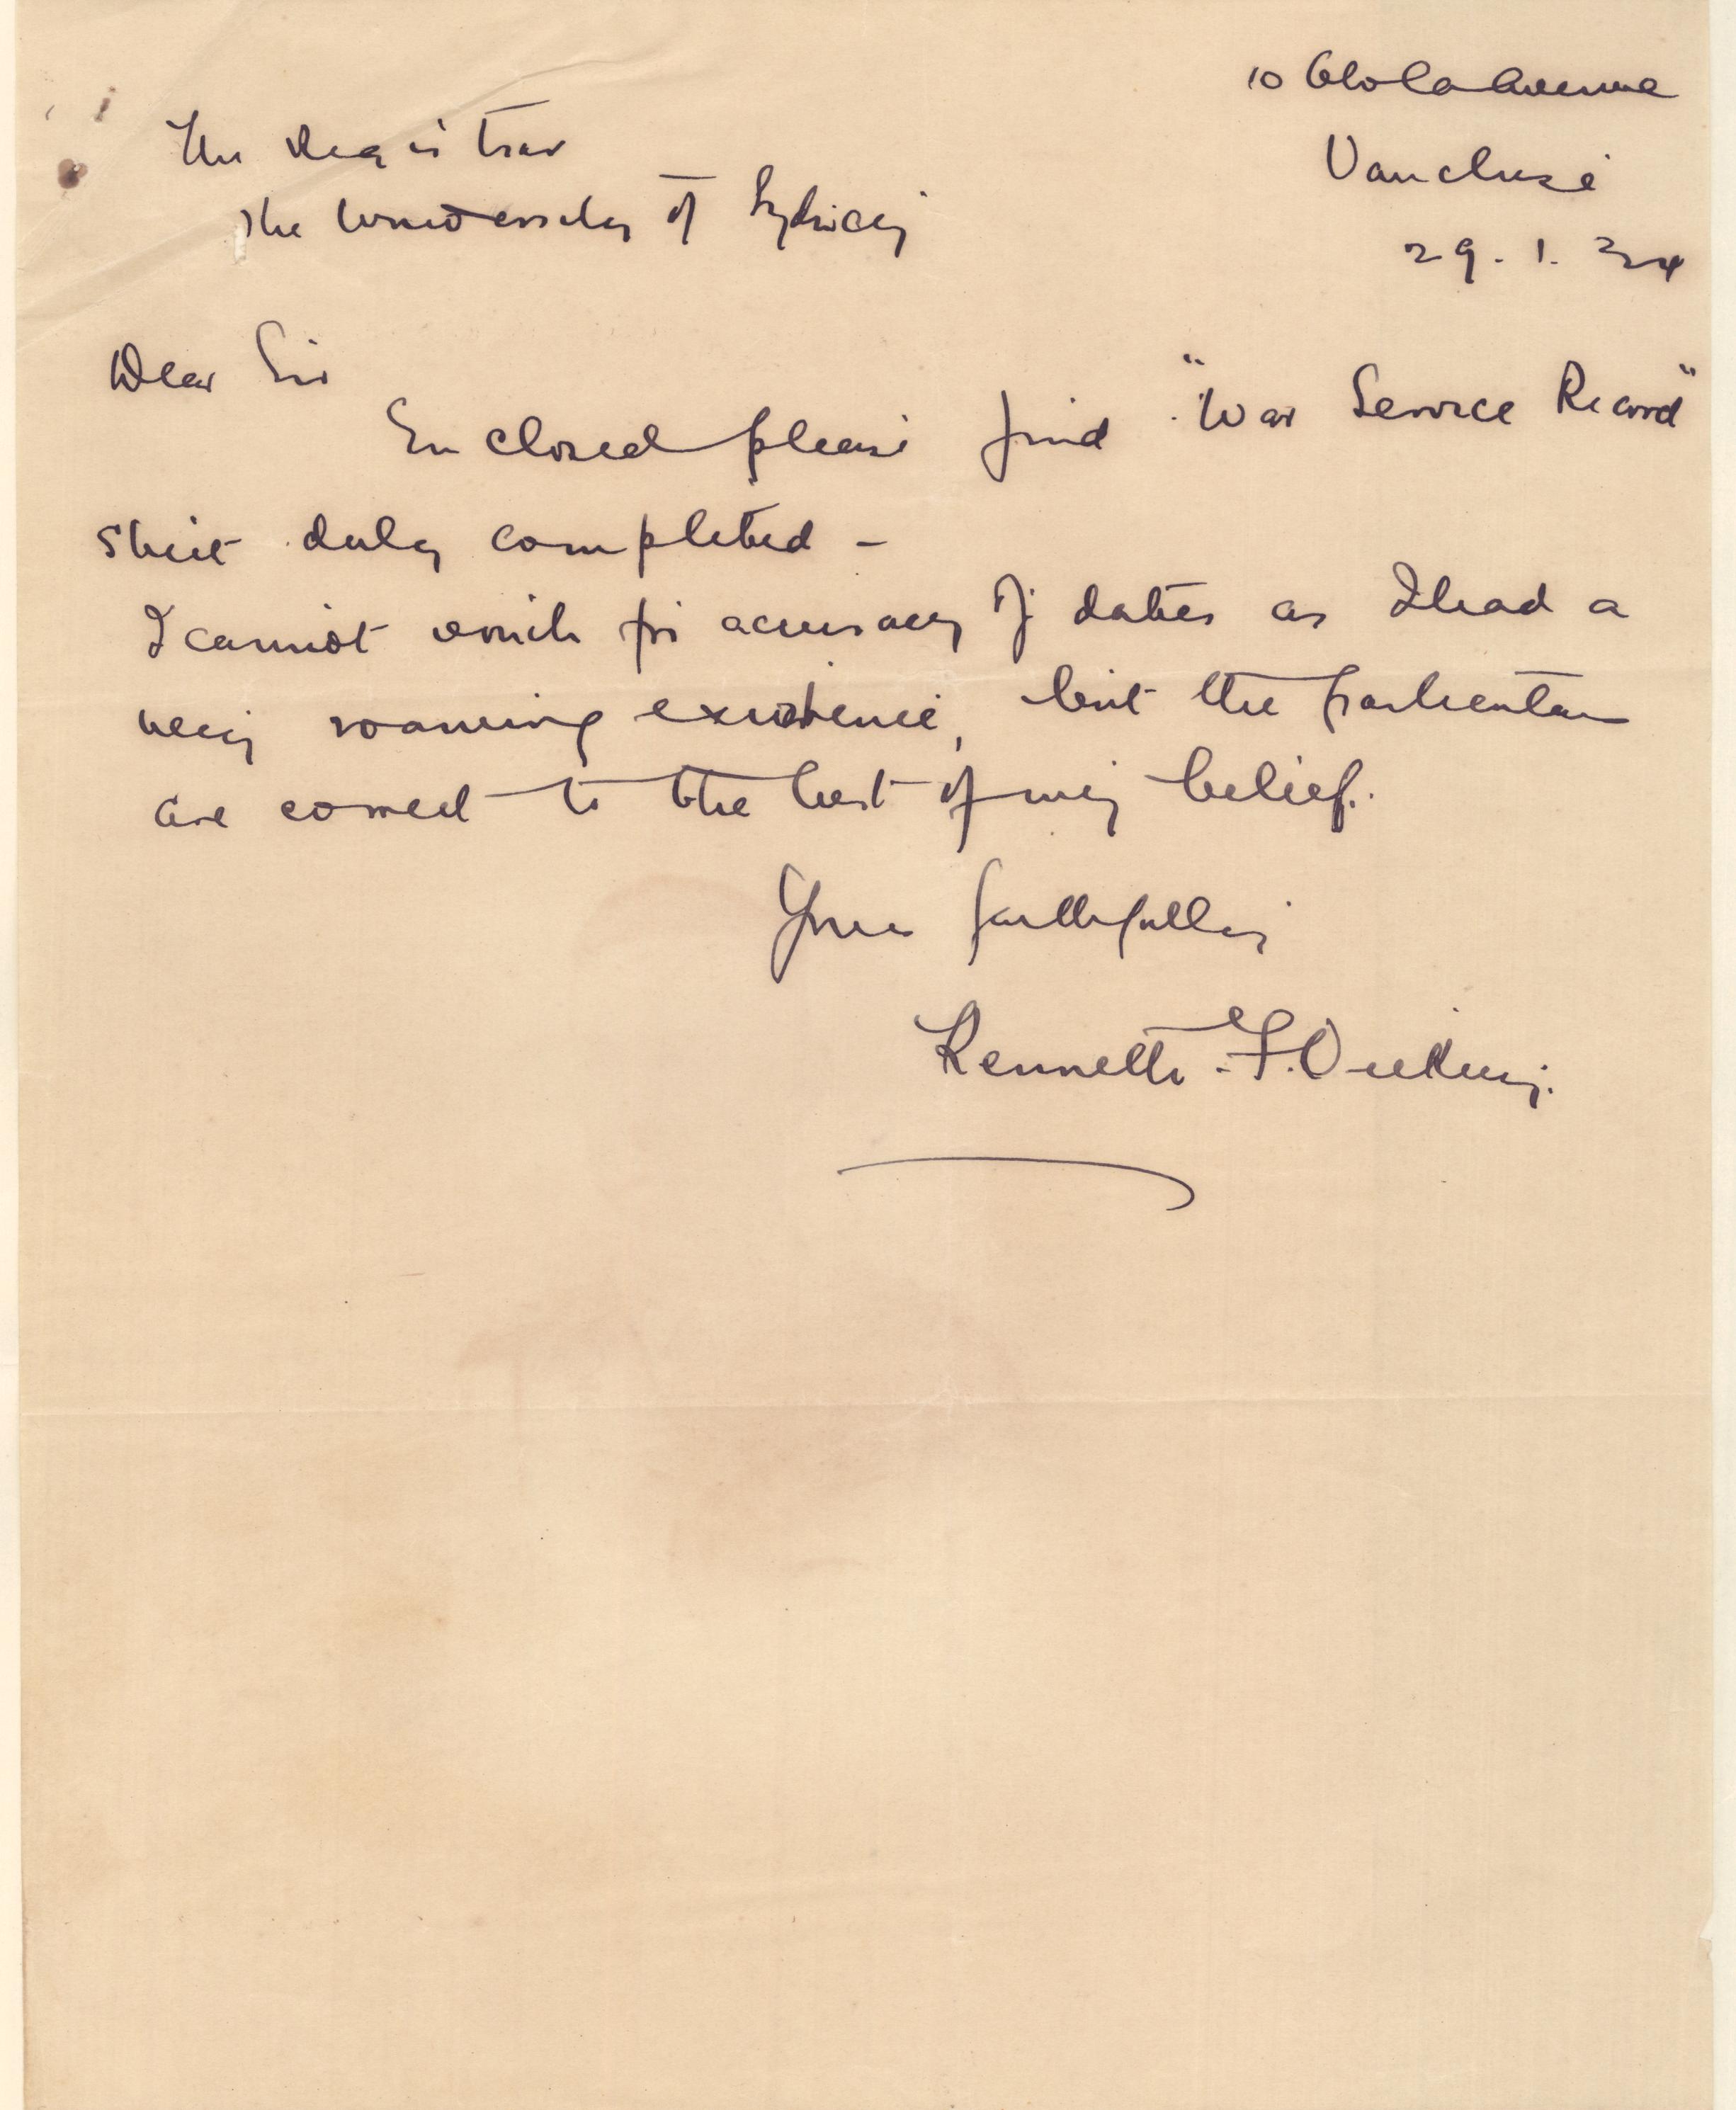 10 Olola Avenue
Vaucluse
29. 1. 34
The Registrar
The University of Sydney
Dear Sir
Enclosed please find "War Service Record"
sheet duly completed -
I cannot vouch for accuracy of dates as I had a
very roaming existence, but the particulars
are correct to the best of my belief.
Yours faithfully
Kenneth F.